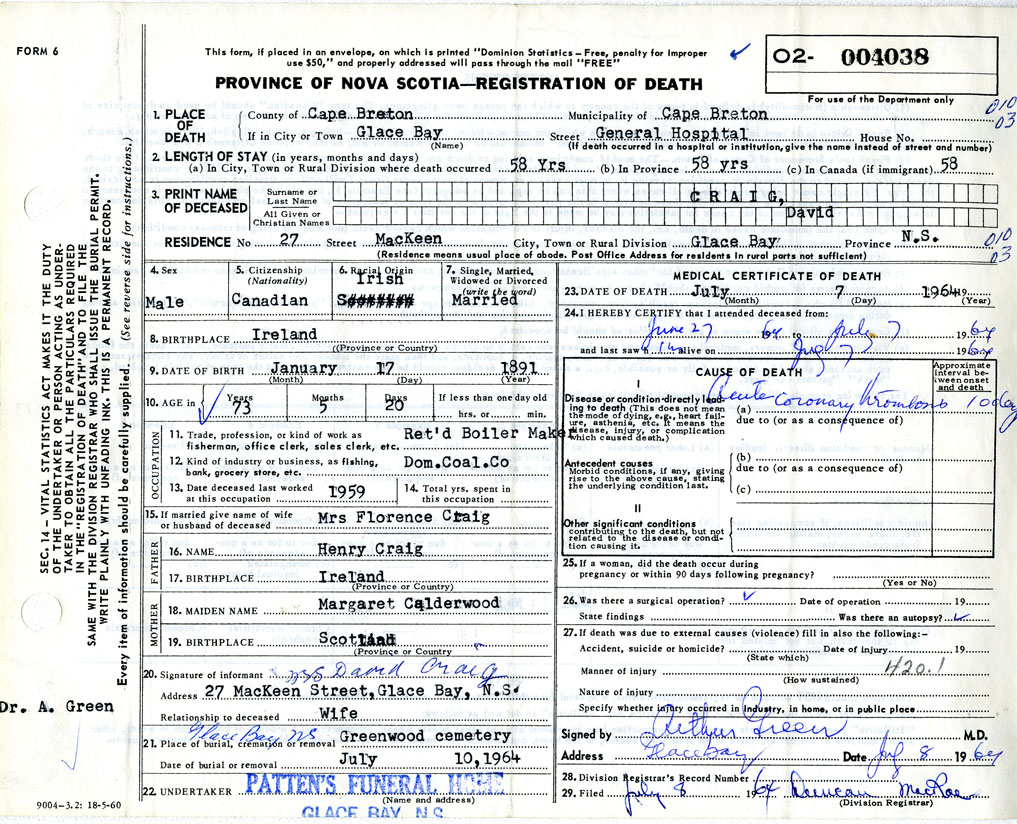 FORM 6
This form, if placed in an envelope, on which is printed "Dominion Statistics – Free, penalty for improper
use $50," and properly addressed will pass through the mail "FREE"
O2- 004038
PROVINCE OF NOVA SCOTIA—REGISTRATION OF DEATH
For use of the Department only
010
03
1. PLACE OF DEATH
County of Cape Breton Municipality of Cape Breton
If in City or Town Glace Bay Street General Hospital House No.
(Name) (If death occurred in a hospital or institution, give the name instead of street and number)
2. LENGTH OF STAY (in years, months and days)
(a) In City, Town or Rural Division where death occurred 58 Yrs (b) In Province 58 yrs (c) In Canada (if immigrant) 58
3. PRINT NAME OF DECEASED
Surname or Last Name CRAIG,
All Given or Christian Names David
RESIDENCE No 27 Street MacKeen City, Town or Rural Division Glace Bay Province N.S.
010
03
(Residence means usual place of abode. Post Office Address for residents in rural parts not sufficient)
4. Sex
Male
5. Citizenship
(Nationality)
Canadian
6. Racial Origin
Irish
S#######
7. Single, Married,
Widowed or Divorced
(write the word)
Married
8. BIRTHPLACE Ireland
((Province or Country)
9. DATE OF BIRTH January 17 1891
(Month) (Day) (Year)
10. AGE in Years Months Days If less than one day old
73 5 20 hrs. or min.
OCCUPATION
11. Trade, profession, or kind of work as Ret'd Boiler Maker
fisherman, office clerk, sales clerk, etc.
12. Kind of industry or business, as fishing, Dom.Coal.Co
bank, grocery store, etc.
13. Date deceased last worked
at this occupation 1959
14. Total yrs. spent in
this occupation
15. If married give name of wife
or husband of deceased Mrs Florence Craig
FATHER
16. NAME Henry Craig
17. BIRTHPLACE Ireland
(Province or Country)
MOTHER
18. MAIDEN NAME Margaret Calderwood
19. BIRTHPLACE Scotland
(Province or Country
20. Signature of informant Mrs David Craig
Address 27 MacKeen Street, Glace Bay, N.S.
Relationship to deceased Wife
Glace Bay, NS
21. Place of burial, cremation or removal Greenwood cemetery
Date of burial or removal July 10,1964
22. UNDERTAKER PATTEN'S FUNERAL HOME
(Name and address)
GLACE BAY, N.S.
MEDICAL CERTIFICATE OF DEATH
23. DATE OF DEATH July 7 1964
(Month) (Day) (Year)
24. I HEREBY CERTIFY that I attended deceased from:
June 27 1964 to July 7 1964
and last saw him alive on July 7 1964
CAUSE OF DEATH
Approximate
interval be-
tween onset
and death
I
Disease or condition directly lead-
ing to death (This does not mean
the mode of dying, e.g., heart fail-
ure, asthenia, etc. It means the
disease, injury, or complication
which caused death.)
(a) Acute Coronary Thrombosis 10 days
due to (or as a consequence of)
Antecedent causes
Morbid conditions, if any, giving
rise to the above cause, stating
the underlying condition last.
(b)
due to (or as a consequence of)
(c)
II
Other significant conditions
contributing to the death, but not
related to the disease or condi-
tion causing it.
25. If a woman, did the death occur during
pregnancy or within 90 days following pregnancy?
(Yes or No)
26. Was there a surgical operation? Date of operation 19
State findings Was there an autopsy?
27. If death was due to external causes (violence) fill in also the following:–
Accident, suicide or homicide? Date of injury 19
(State which)
Manner of injury 420.1
(How sustained)
Nature of injury
Specify whether injury occurred in industry, in home, or in public place
Signed by Arthur Green M.D.
Address Glace Bay Date July 8 1964
28. Division Registrar's Record Number
29. Filed July 8 1964 Duncan MacRae
(Division Registrar)
SEC. 14 – VITAL STATISTICS ACT MAKES IT THE DUTY
OF THE UNDERTAKER OR PERSON ACTING AS UNDER-
TAKER TO OBTAIN ALL THE PARTICULARS REQUIRED
IN THE "REGISTRATION OF DEATH" AND TO FILE THE
SAME WITH THE DIVISION REGISTRAR WHO SHALL ISSUE THE BURIAL PERMIT.
WRITE PLAINLY WITH UNFADING INK. THIS IS A PERMANENT RECORD.
Every item of information should be carefully supplied. (See reverse side for instructions.)
Dr. A. Green
9004–3.2: 18-5-60